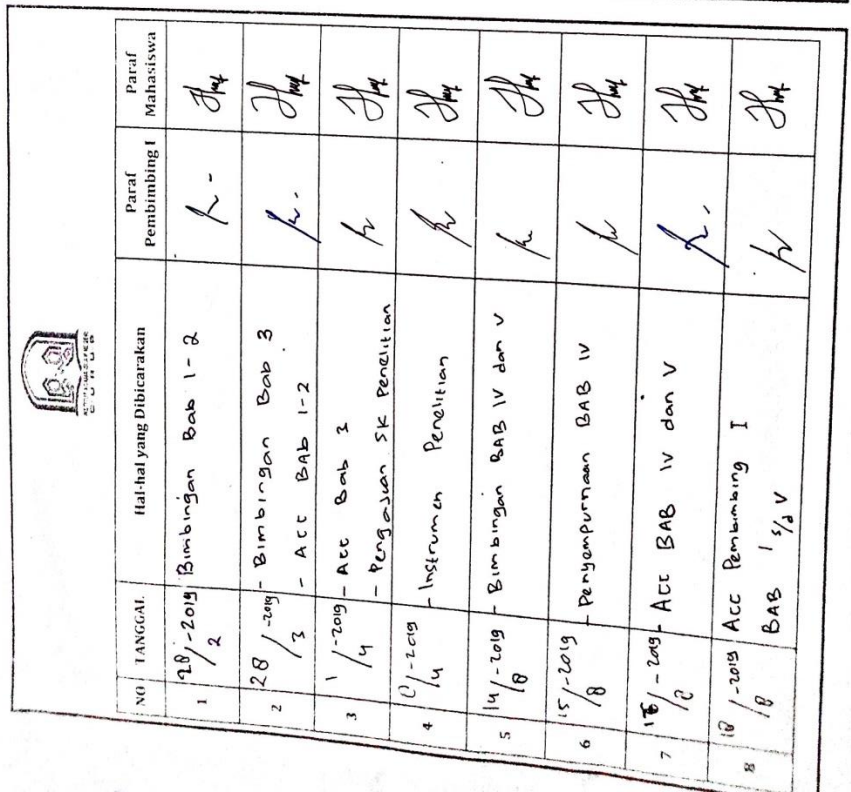 NO TANGGAL Hal-hal yang Dibicarakan Paraf Pembimbing I Paraf Mahasiswa
1 28/2-2019 Bimbingan Bab 1-2
2 28/3-2019 - Bimbingan Bab 3
- Acc BAb 1-2
3 1/4-2019 - Acc Bab 3
- Pengajuan SK Penelitian
4 /4-2019 - Instrumen Penelitian
5 14/8-2019 - Bimbingan BAB IV dan V
6 15/8-2019 - Penyempurnaan BAB IV
7 -2019 - Acc BAB IV dan V
8 18/8-2019 Acc Pembimbing I
BAB I s/d V